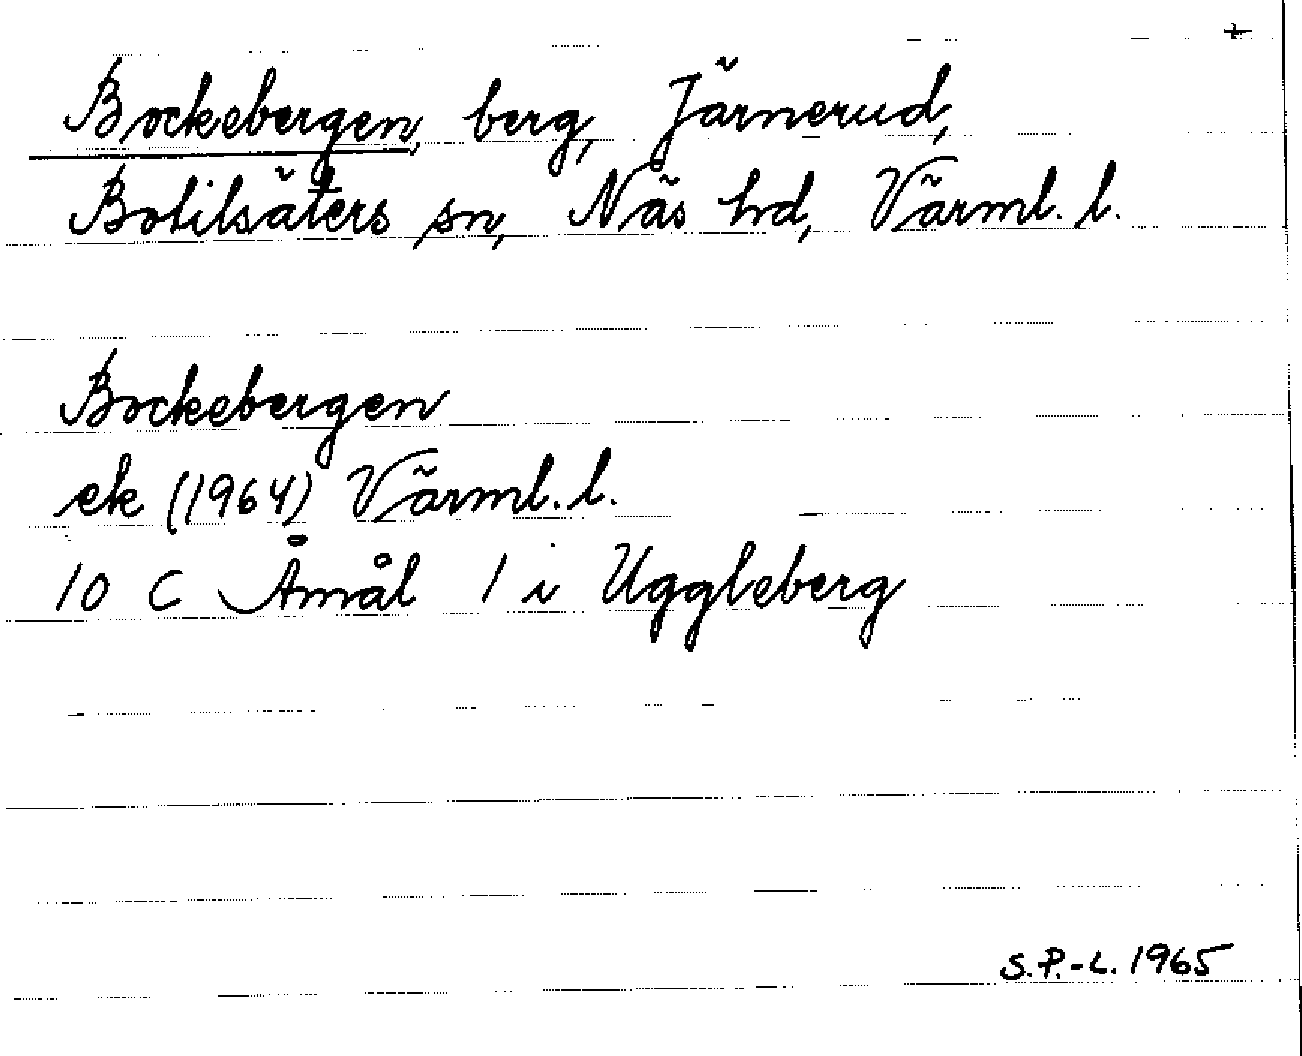 Bockebergen, berg, Järnerud,
Botilsäters sn, Näs hd, Värml. l.
Bockebergen
ek (1964) Värml. l.
10 C Åmål 1 i Uggleberg
S.P.-L. 1965